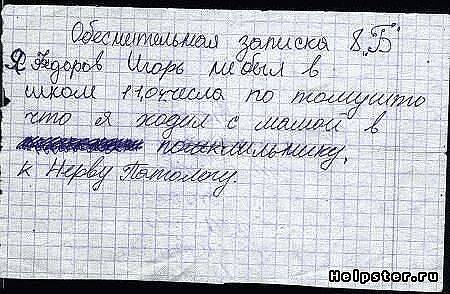 Обеснительная записка 8„Б"
Я Федоров Игорь небыл в
школ 11,04числа по томушто
что я ходил с мамой в
к Нерву Патологу.
Helpster.ru